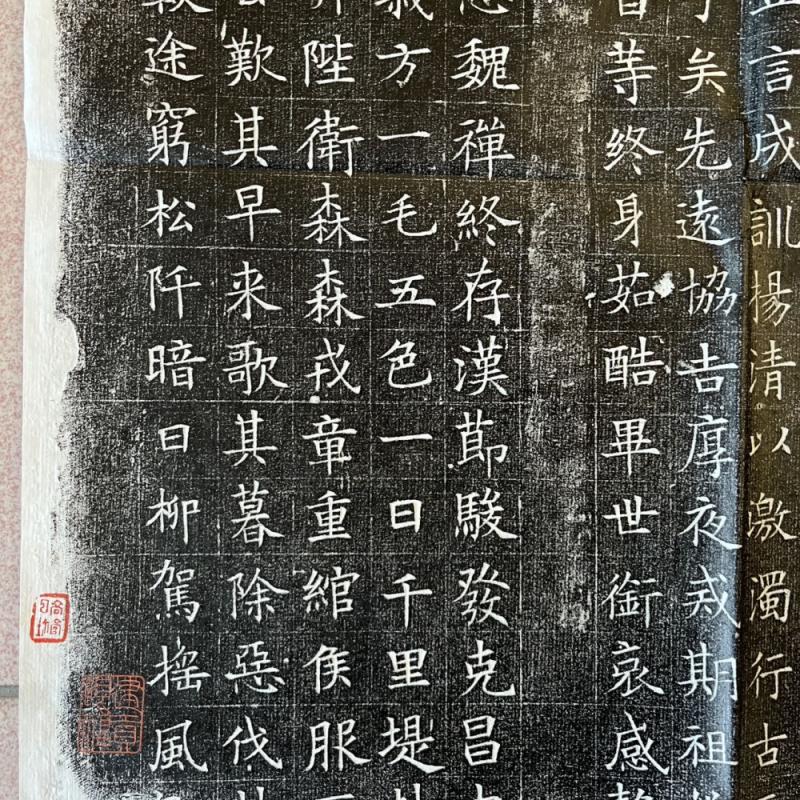 言成訓揚清以激濁行古
矣先遠協吉厚夜戒期祖
等終身茹酷畢世銜哀感
魏禪終存漢節駿發克昌
方一毛五色一日千里堤
陛衛森森戎章重綰侯服
歎其早来歌其暮除惡伐
途窮松阡暗日柳駕搖風